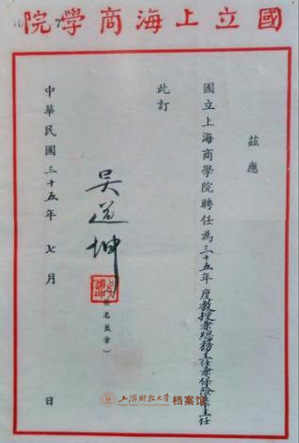 國立上海商學院
茲應
國立上海商學院聘任為三十五年度教授兼總務主任兼保險系主任
此訂
吳道坤
(簽名蓋章)
中華民國三十五年七月 日
上海财经大学 档案馆